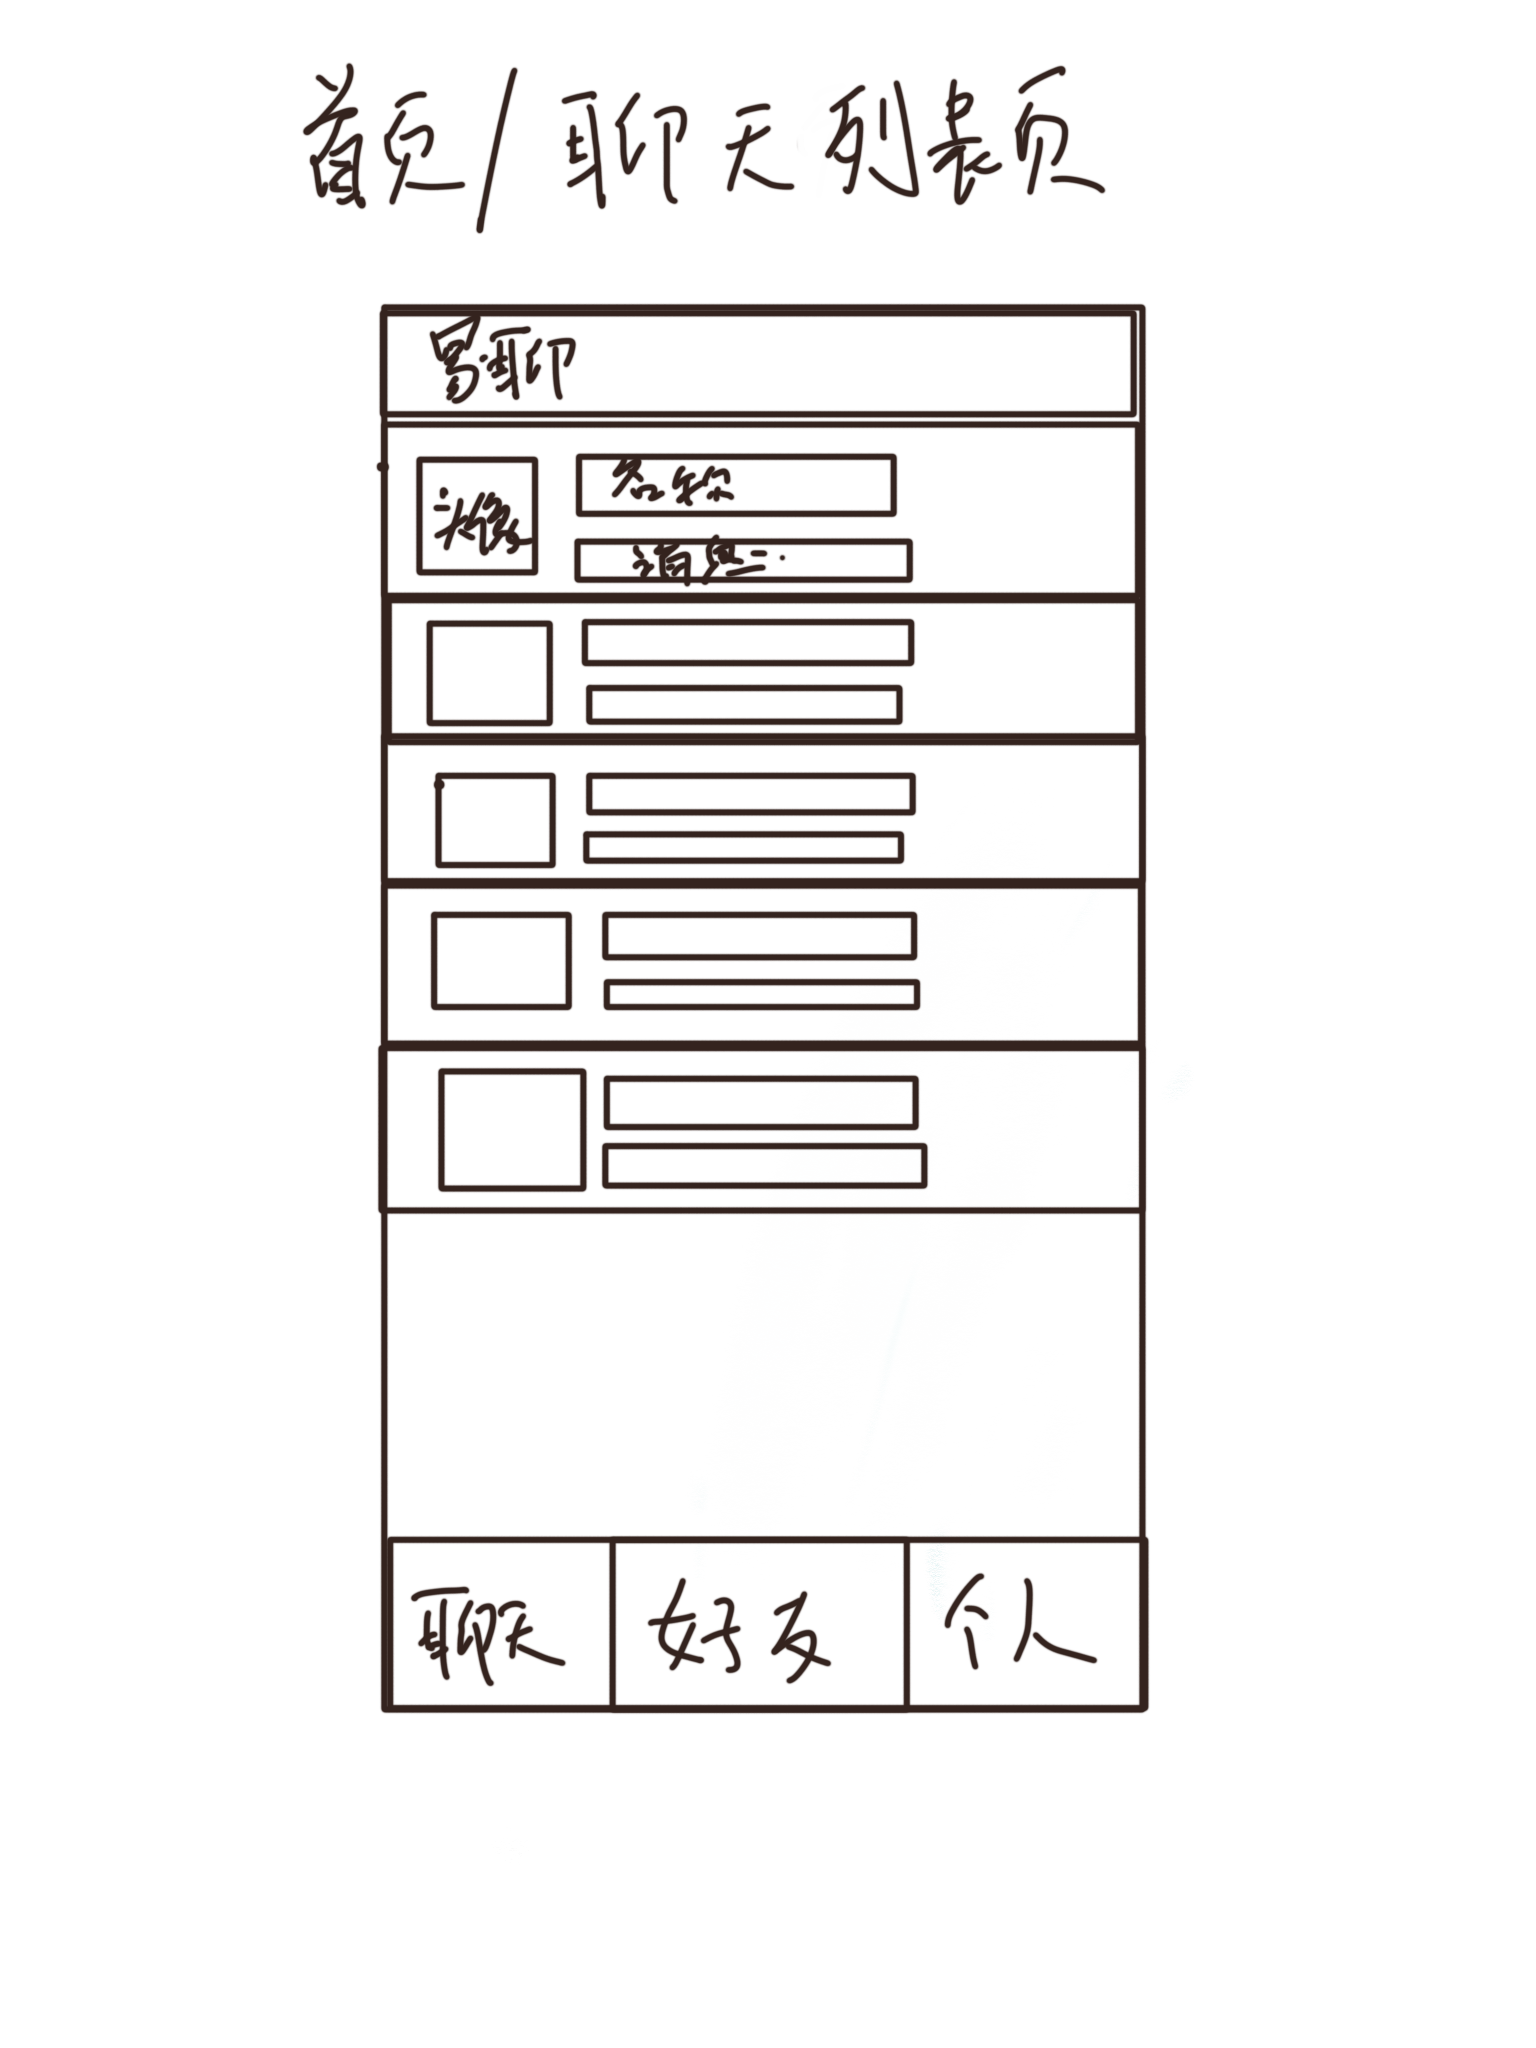 首页/聊天列表页
易聊
头像
名称
消息...
聊天
好友
个人